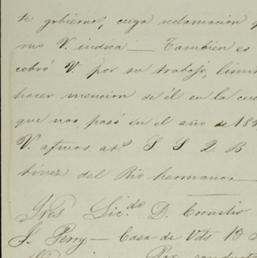 te gobierno, cuya reclamación
mo V. indica — También es
cobró V. por su trabajo,
hacer mención de él en la
que nos pasó en el año de 18
V. afmos atº S S Q B
Rio hermanos
Sres Lic.do D. Cornelio
J. Perry — Casa de Vds 18